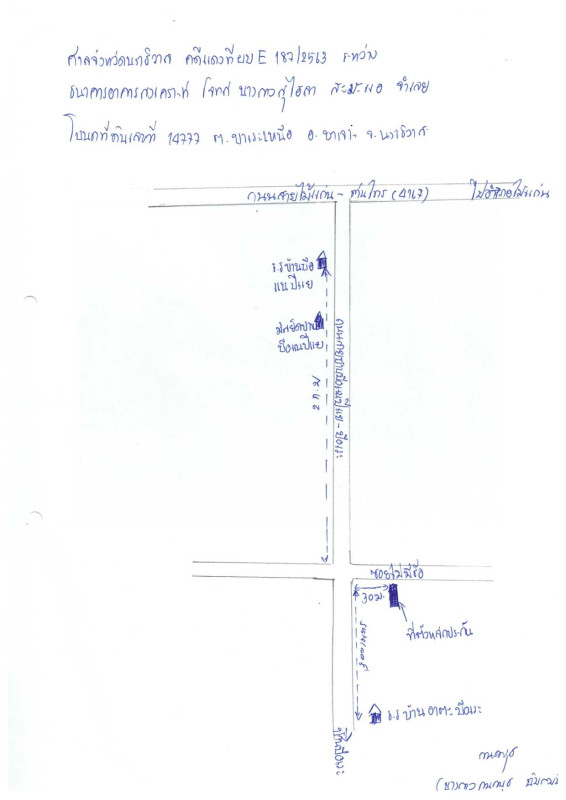 ศาลจังหวัดนราธิวาส คดีแดงที่ ผบ E 187/2563 ระหว่าง
ธนาคารอาคารสงเคราะห์ โจทก์ นางสาวสุไฮลา จำเลย
โฉนดที่ดินเลขที่ 14777 ต.บาเระเหนือ อ.บาเจาะ จ.นราธิวาส
ถนนสายไม้แก่น - ต้นไทร (4167)
ไปอำเภอไม้แก่น
ร.ร บ้านบือ
แนปีแย
มัสยิดบ้าน
บือแนปีแย
ถนนสายบ้านบือแนปีแย - บือเระ
ซอยไม่มีชื่อ
30 ม.
ที่ตั้งหลักประกัน
ร.ร บ้านอาตะบือเระ
ไปบือเระ